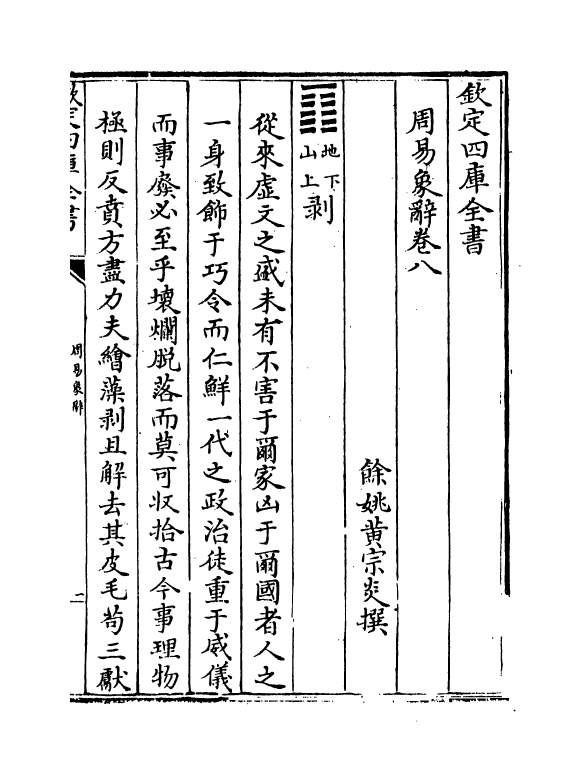 欽定四庫全書
周易象辭卷八
餘姚黄宗炎撰
䷖地下山上剥
從來虛文之盛未有不害于爾家凶于爾國者人之
一身致飾于巧令而仁鮮一代之政治徒重于威儀
而事廢必至乎壞爛脱落而莫可收拾古今事理物
極則反賁方盡力夫繪藻剥且解去其皮毛苟三獻
欽定四庫全書
周易象辭